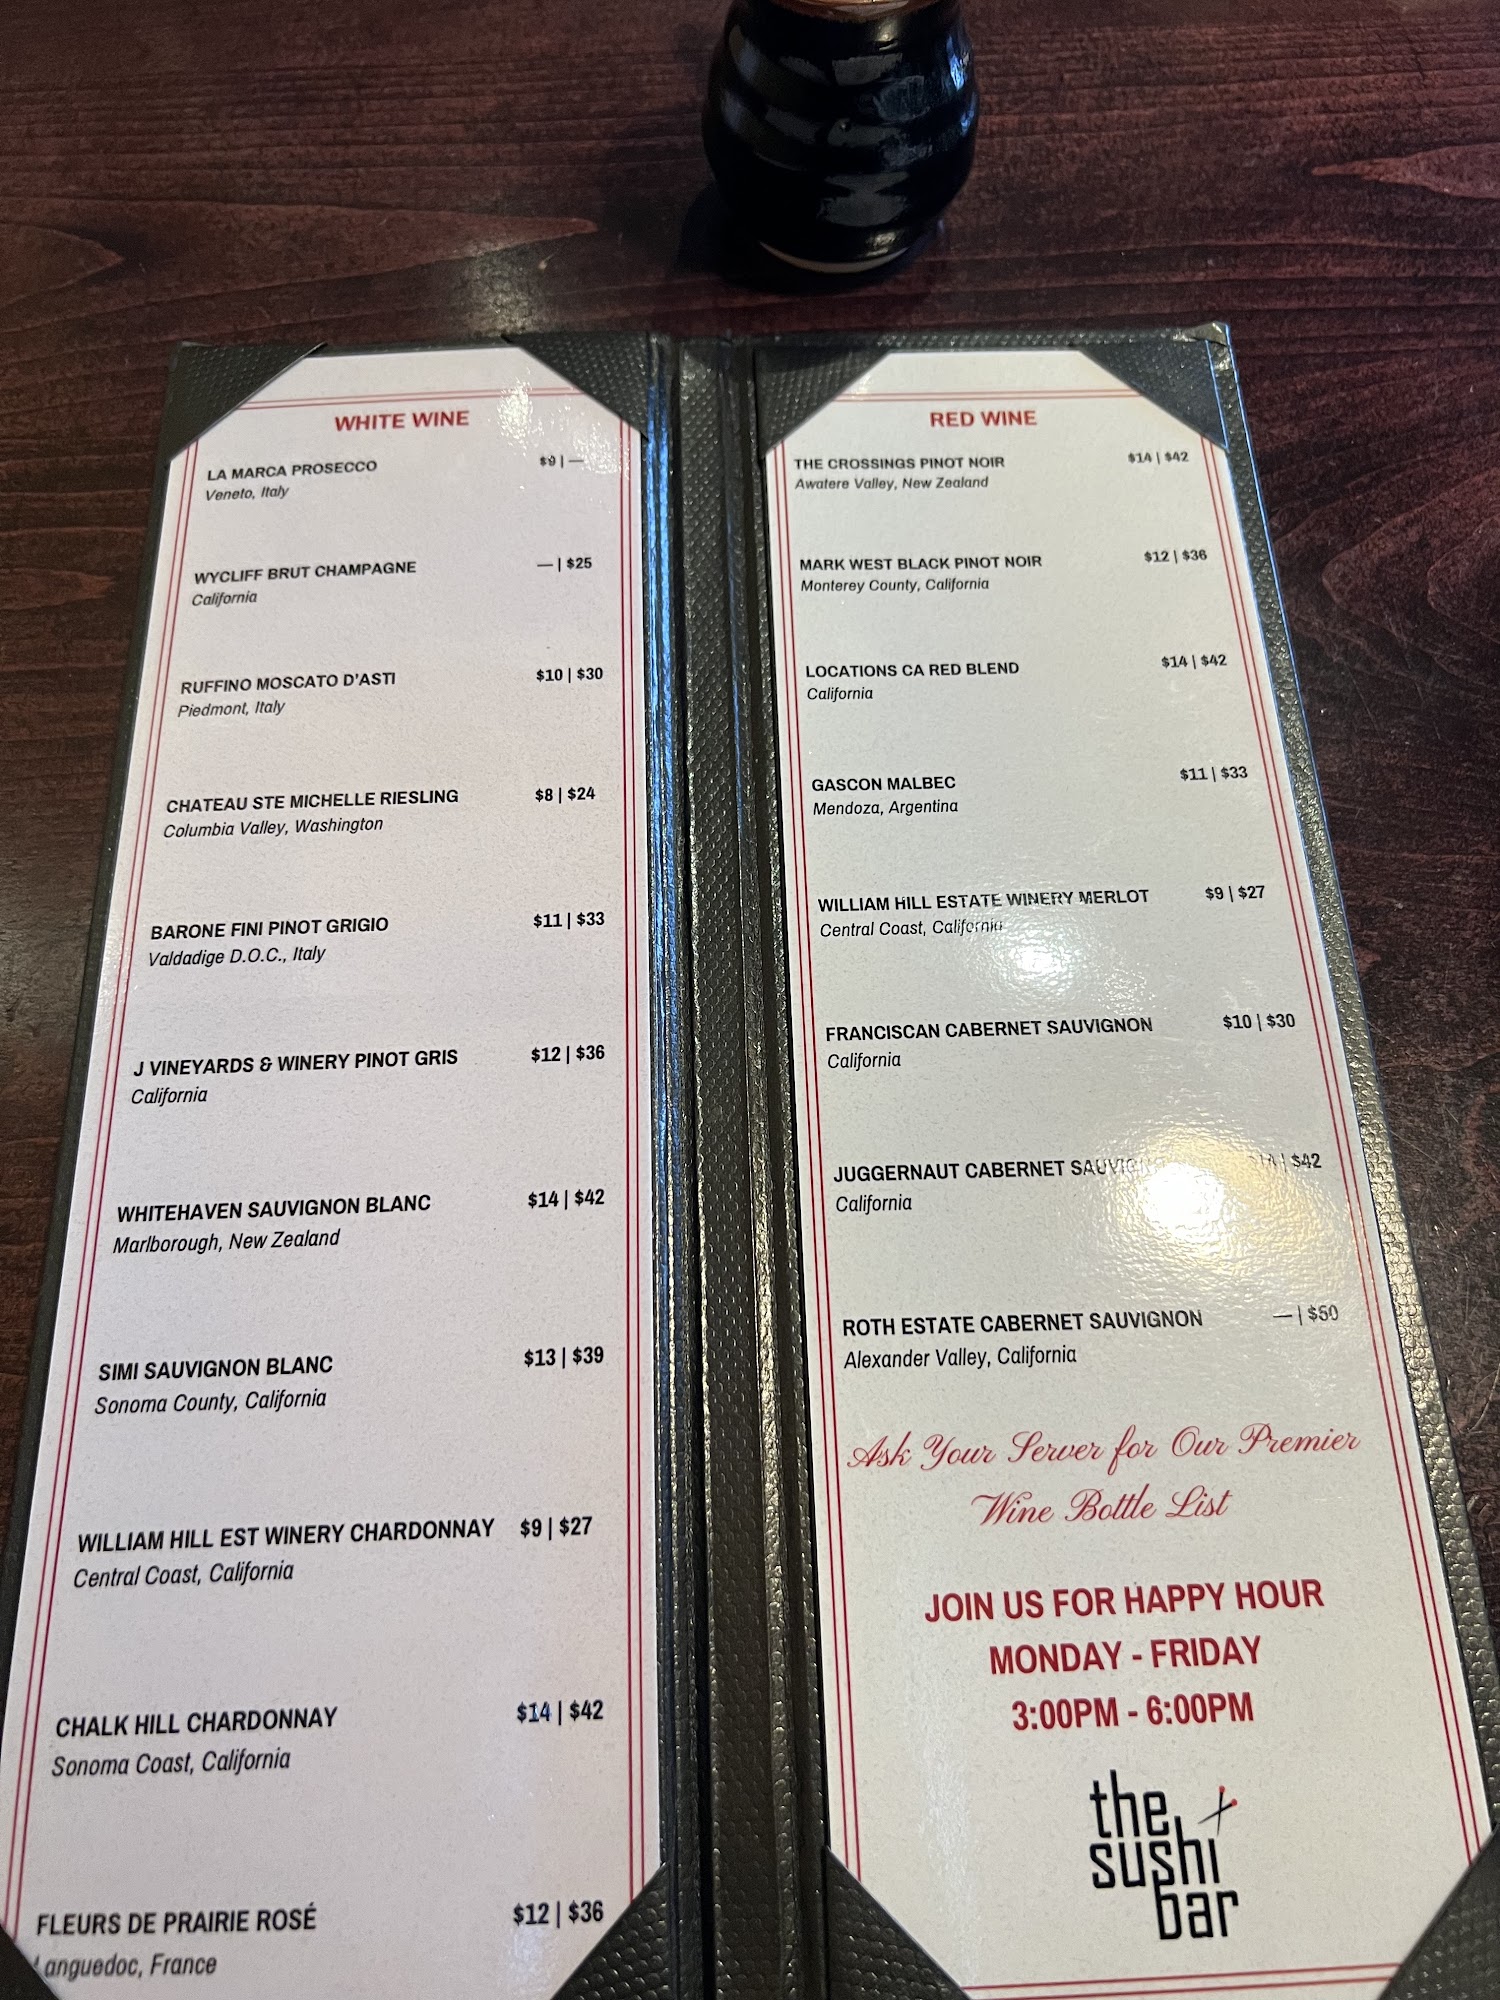 WHITE WINE
LA MARCA PROSECCO $9 | —
Veneto, Italy
WYCLIFF BRUT CHAMPAGNE — | $25
California
RUFFINO MOSCATO D'ASTI $10 | $30
Piedmont, Italy
CHATEAU STE MICHELLE RIESLING $8 | $24
Columbia Valley, Washington
BARONE FINI PINOT GRIGIO $11 | $33
Valdadige D.O.C., Italy
J VINEYARDS & WINERY PINOT GRIS $12 | $36
California
WHITEHAVEN SAUVIGNON BLANC $14 | $42
Marlborough, New Zealand
SIMI SAUVIGNON BLANC $13 | $39
Sonoma County, California
WILLIAM HILL EST WINERY CHARDONNAY $9 | $27
Central Coast, California
CHALK HILL CHARDONNAY $14 | $42
Sonoma Coast, California
FLEURS DE PRAIRIE ROSÉ $12 | $36
Languedoc, France
RED WINE
THE CROSSINGS PINOT NOIR $14 | $42
Awatere Valley, New Zealand
MARK WEST BLACK PINOT NOIR $12 | $36
Monterey County, California
LOCATIONS CA RED BLEND $14 | $42
California
GASCON MALBEC $11 | $33
Mendoza, Argentina
WILLIAM HILL ESTATE WINERY MERLOT $9 | $27
Central Coast, California
FRANCISCAN CABERNET SAUVIGNON $10 | $30
California
JUGGERNAUT CABERNET | $42
California
ROTH ESTATE CABERNET SAUVIGNON — | $50
Alexander Valley, California
Ask Your Server for Our Premier
Wine Bottle List
JOIN US FOR HAPPY HOUR
MONDAY - FRIDAY
3:00PM - 6:00PM
the
sushi
bar